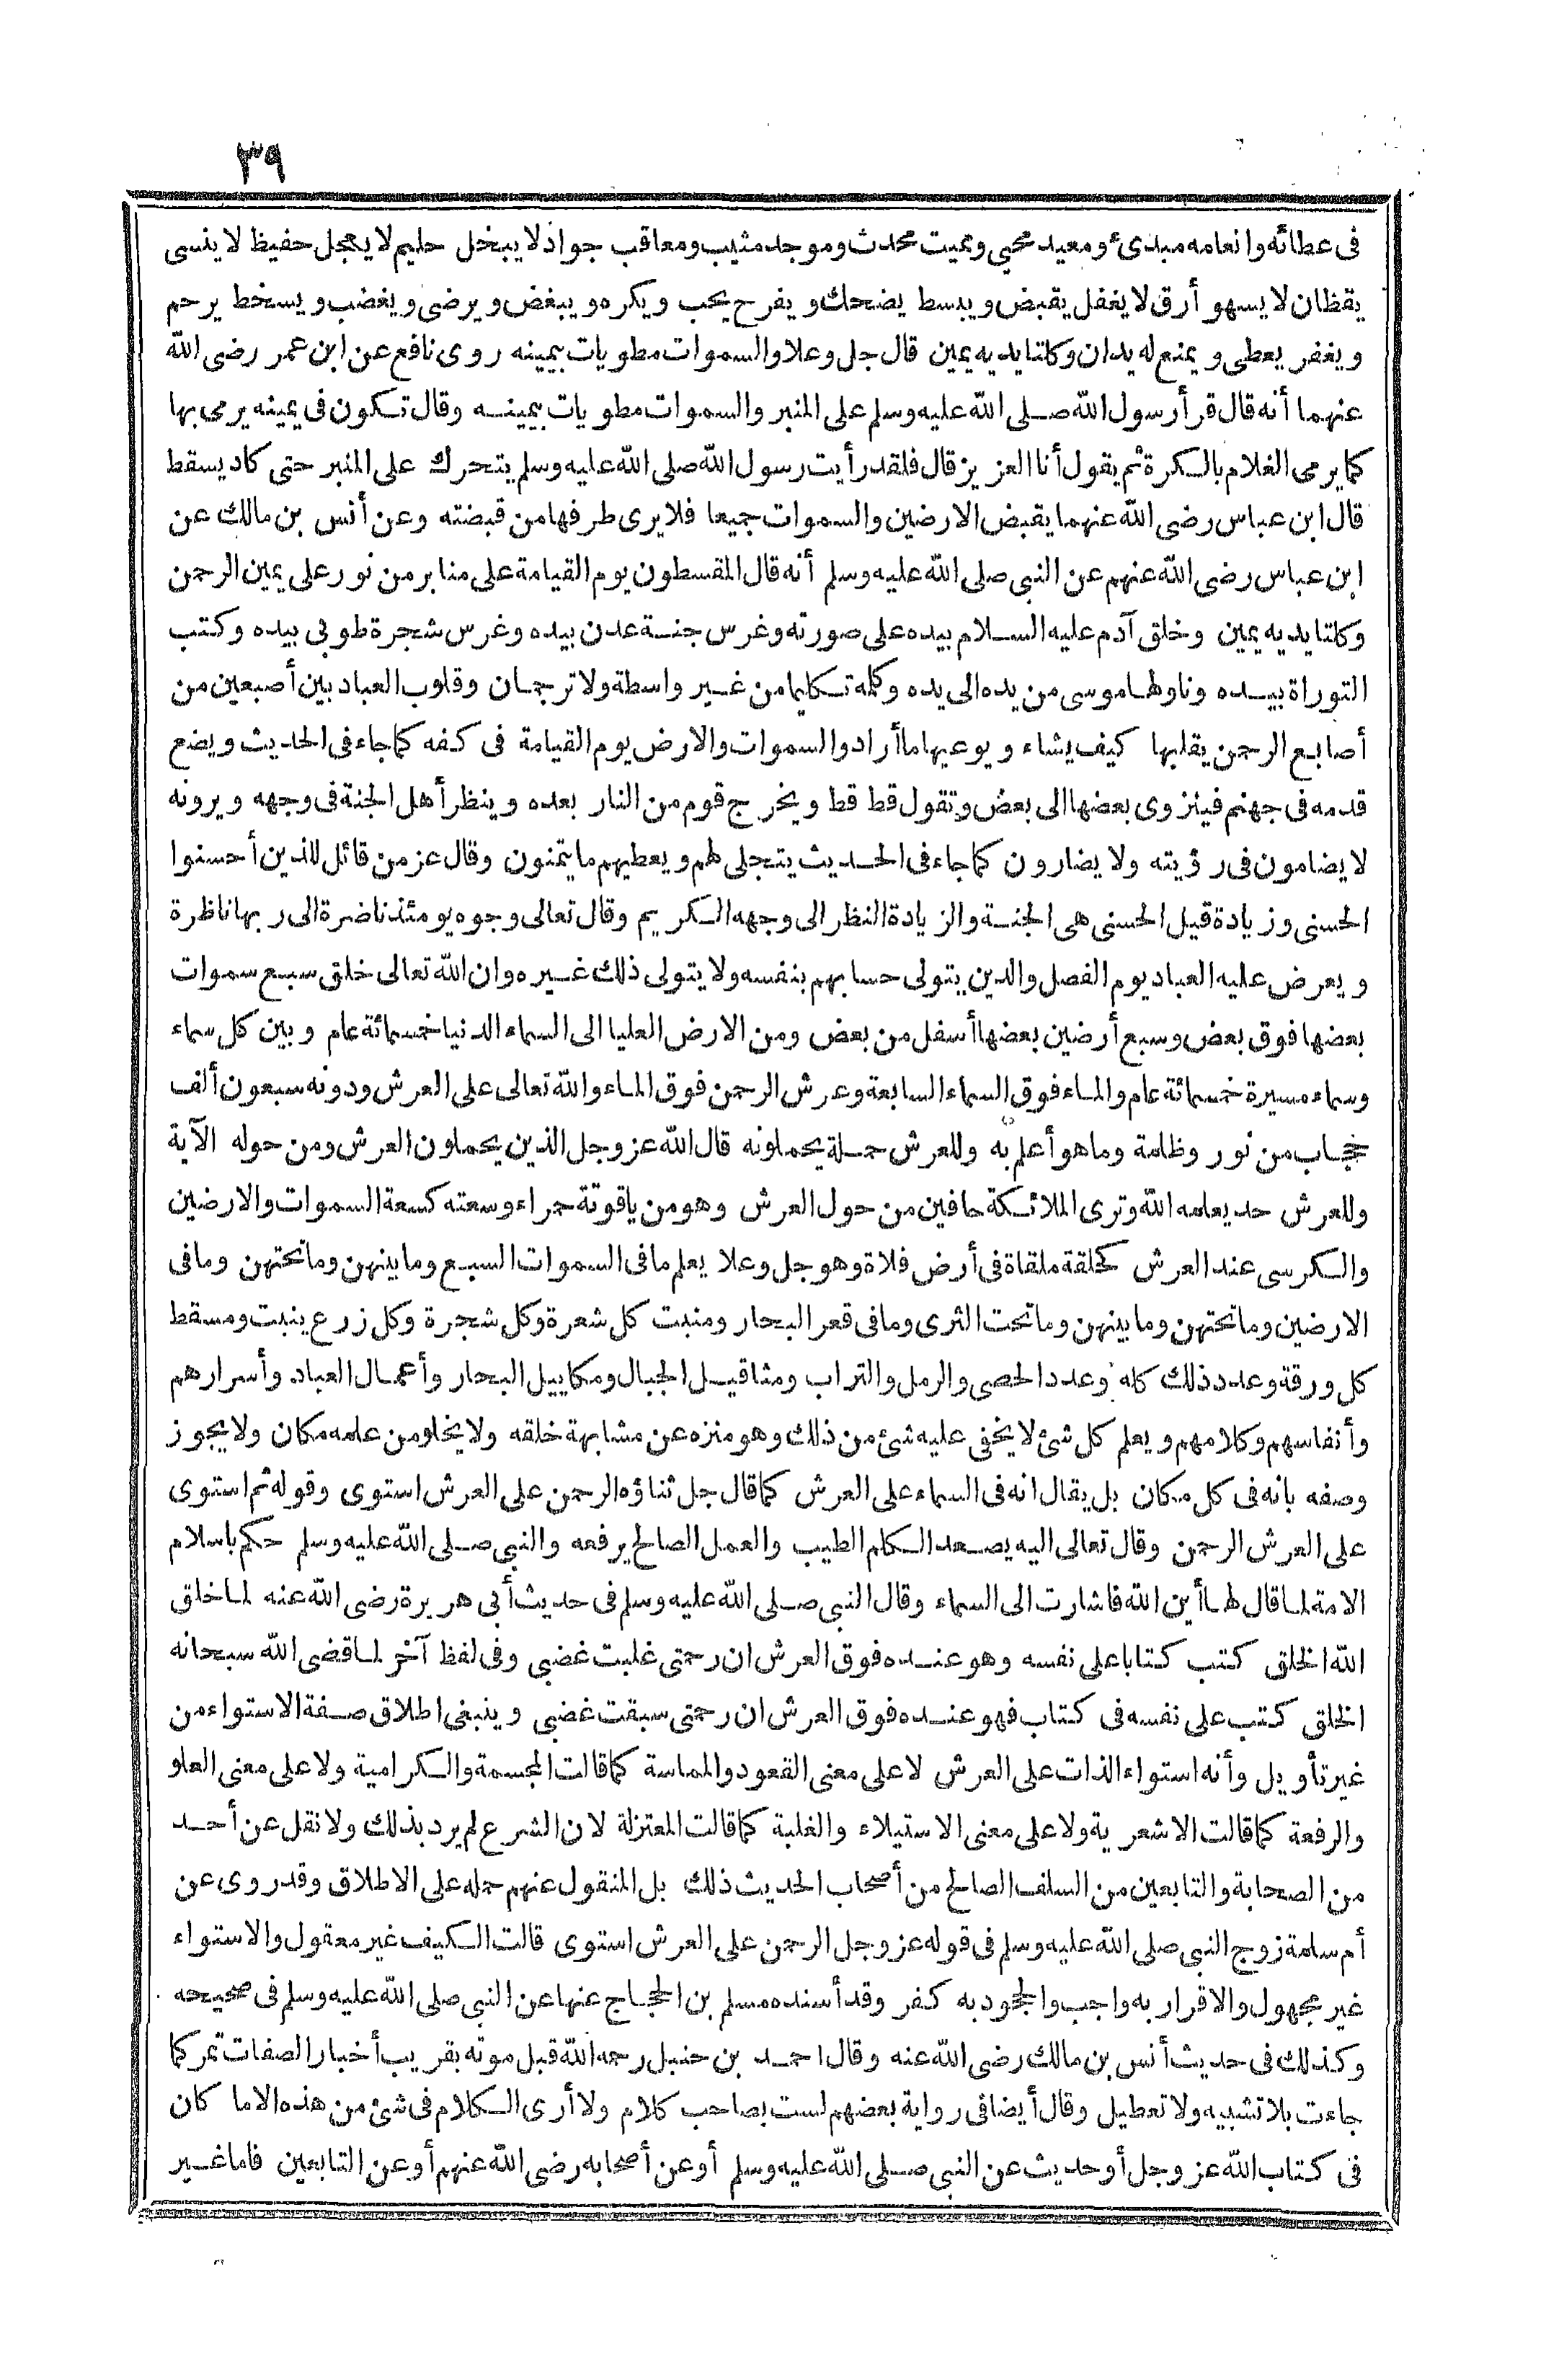 ٣٩
فى عطائه وانعامه مبدئ ومعيد محيى ومميت محدث وموجد مثيب ومعاقب جواد لا يبخل حليم لا يعجل حفيظ لا ينسى
يقظان لا يسهو أرق لا يغفل يقبض ويبسط يضحك ويفرح يحب ويكره ويبغض ويرضى ويغضب ويسخط يرحم
ويغفر يعطى ويمنع له يدان وكلتا يديه يمين قال جل وعلا والسموات مطويات بيمينه روى نافع عن ابن عمر رضى الله
عنهما أنه قال قرأ رسول الله صلى الله عليه وسلم على المنبر والسموات مطويات بيمينه وقال تكون فى يمينه يرمى بها
كما يرمى الغلام بالكرة ثم يقول أنا العزيز قال فلقد رأيت رسول الله صلى الله عليه وسلم يتحرك على المنبر حتى كاد يسقط
قال ابن عباس رضى الله عنهما يقبض الارضين والسموات جميعا فلا يرى طرفها من قبضته وعن أنس بن مالك عن
ابن عباس رضى الله عنهم عن النبى صلى الله عليه وسلم أنه قال المقسطون يوم القيامة على منابر من نور على يمين الرحمن
وكلتا يديه يمين وخلق آدم عليه السلام بيده على صورته وغرس جنة عدن بيده وغرس شجرة طوبى بيده وكتب
التوراة بيده وناولها موسى من يده الى يده وكلمه تكليما من غير واسطة ولا ترجمان وقلوب العباد بين أصبعين من
أصابع الرحمن يقلبها كيف يشاء ويوعيها ما أراد والسموات والارض يوم القيامة فى كفه كما جاء فى الحديث ويضع
قدمه فى جهنم فينزوى بعضها الى بعض وتقول قط قط ويخرج قوم من النار بعده وينظر أهل الجنة فى وجهه ويرونه
لا يضامون فى رؤيته ولا يضارون كما جاء فى الحديث يتجلى لهم ويعطيهم ما يتمنون وقال عز من قائل للذين أحسنوا
الحسنى وزيادة قيل الحسنى هى الجنة والزيادة النظر الى وجهه الكريم وقال تعالى وجوه يومئذ ناضرة الى ربها ناظرة
ويعرض عليه العباد يوم الفصل والدين يتولى حسابهم بنفسه ولا يتولى ذلك غيره وان الله تعالى خلق سبع سموات
بعضها فوق بعض وسبع أرضين بعضها أسفل من بعض ومن الارض العليا الى السماء الدنيا خمسمائة عام وبين كل سماء
وسماء مسيرة خمسمائة عام والماء فوق السماء السابعة وعرش الرحمن فوق الماء والله تعالى على العرش ودونه سبعون ألف
حجاب من نور وظلمة وما هو أعلم به وللعرش حملة يحملونه قال الله عز وجل الذين يحملون العرش ومن حوله الآية
وللعرش حد يعلمه الله وترى الملائكة حافين من حول العرش وهو من ياقوتة حمراء وسعته كسعة السموات والارضين
والكرسى عند العرش كحلقة ملقاة فى أرض فلاة وهو جل وعلا يعلم ما فى السموات السبع وما بينهن وما تحتهن وما فى
الارضين وما تحتهن وما بينهن وما تحت الثرى وما فى قعر البحار ومنبت كل شعرة وكل شجرة وكل زرع ينبت ومسقط
كل ورقة وعدد ذلك كله وعدد الحصى والرمل والتراب ومثاقيل الجبال ومكاييل البحار وأعمال العباد وأسرارهم
وأنفاسهم وكلامهم ويعلم كل شئ لا يخفى عليه شئ من ذلك وهو منزه عن مشابهة خلقه ولا يخلو من علمه مكان ولا يجوز
وصفه بانه فى كل مكان بل يقال انه فى السماء على العرش كما قال جل ثناؤه الرحمن على العرش استوى وقوله ثم استوى
على العرش الرحمن وقال تعالى اليه يصعد الكلم الطيب والعمل الصالح يرفعه والنبى صلى الله عليه وسلم حكم باسلام
الامة لما قال لها أين الله فاشارت الى السماء وقال النبى صلى الله عليه وسلم فى حديث أبى هريرة رضى الله عنه لما خلق
الله الخلق كتب كتابا على نفسه وهو عنده فوق العرش ان رحمتى غلبت غضبى وفى لفظ آخر لما قضى الله سبحانه
الخلق كتب على نفسه فى كتاب فهو عنده فوق العرش ان رحمتى سبقت غضبى وينبغى اطلاق صفة الاستواء من
غير تأويل وأنه استواء الذات على العرش لا على معنى القعود والمماسة كما قالت المجسمة والكرامية ولا على معنى العلو
والرفعة كما قالت الاشعرية ولا على معنى الاستيلاء والغلبة كما قالت المعتزلة لان الشرع لم يرد بذلك ولا نقل عن أحد
من الصحابة والتابعين من السلف الصالح من أصحاب الحديث ذلك بل المنقول عنهم حمله على الاطلاق وقد روى عن
أم سلمة زوج النبى صلى الله عليه وسلم فى قوله عز وجل الرحمن على العرش استوى قالت الكيف غير معقول والاستواء
غير مجهول والاقرار به واجب والجحود به كفر وقد أسنده مسلم بن الحجاج عنها عن النبى صلى الله عليه وسلم فى صحيحه
وكذلك فى حديث أنس بن مالك رضى الله عنه وقال احمد بن حنبل رحمه الله قبل موته بقريب أخبار الصفات تمر كما
جاءت بلا تشبيه ولا تعطيل وقال أيضا فى رواية بعضهم لست بصاحب كلام ولا أرى الكلام فى شئ من هذه الا ما كان
فى كتاب الله عز وجل أو حديث عن النبى صلى الله عليه وسلم أو عن أصحابه رضى الله عنهم أو عن التابعين فاما غير